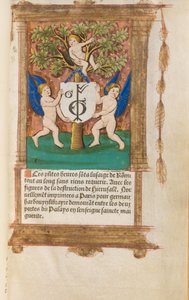 Les p̃ntes heures sõt a lusaige de Rõm
tout au long sans riens requerir. Auec les
figures de la destruction de Hierusalẽ. Nou
uellemẽt imprimees a Paris pour germain
hardouyn libraire demourãt entre les deux
portes du Palays a lenseigne saincte mar
guerite.